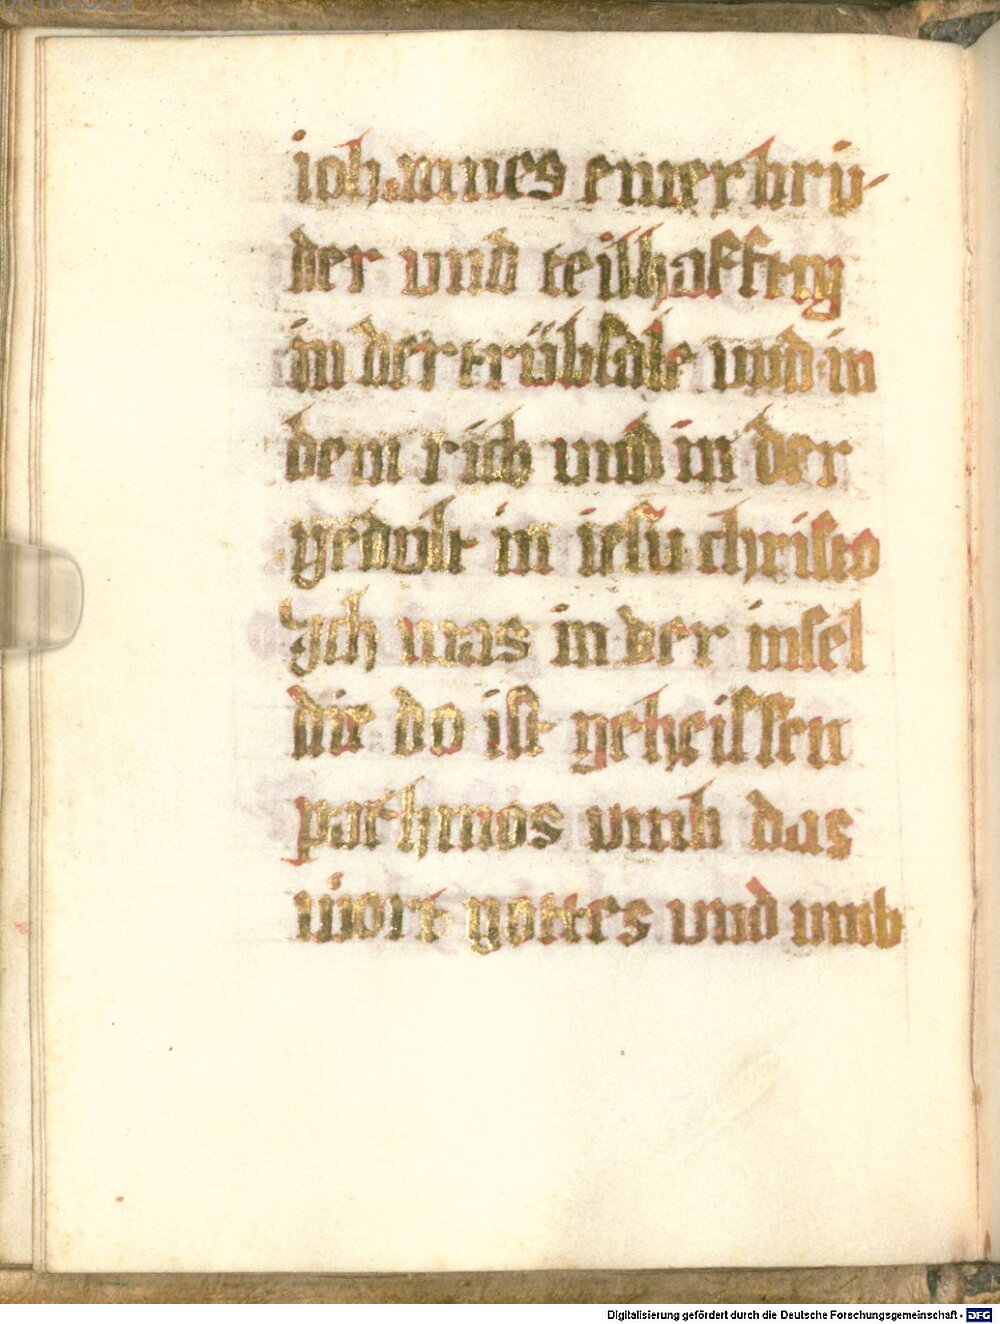 iohannes einer brü-
der und teilhafftig
in der trübsale und in
dem rich und in der
gedult in iesu christo
Ich was in der insel
die do ist geheissen
pathmos umb das
wort gottes und umb
Digitalisierung gefördert durch die Deutsche Forschungsgemeinschaft - DFG